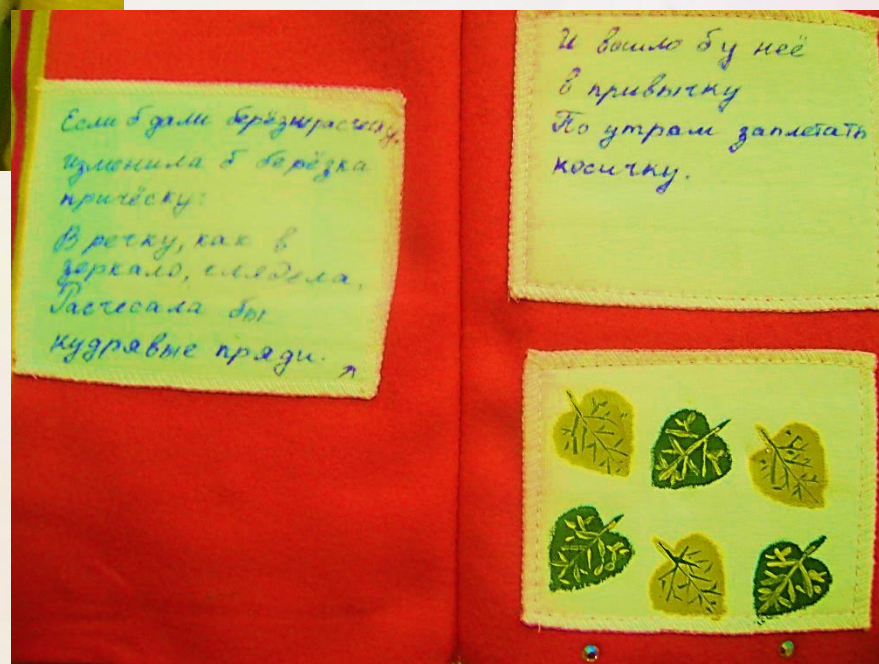 Если б дали берёзке расчёску,
Изменила б берёзка
причёску:
В речку, как в
зеркало, глядела,
Расчесала бы
кудрявые пряди.
И вошло б у неё
в привычку
По утрам заплетать
косичку.